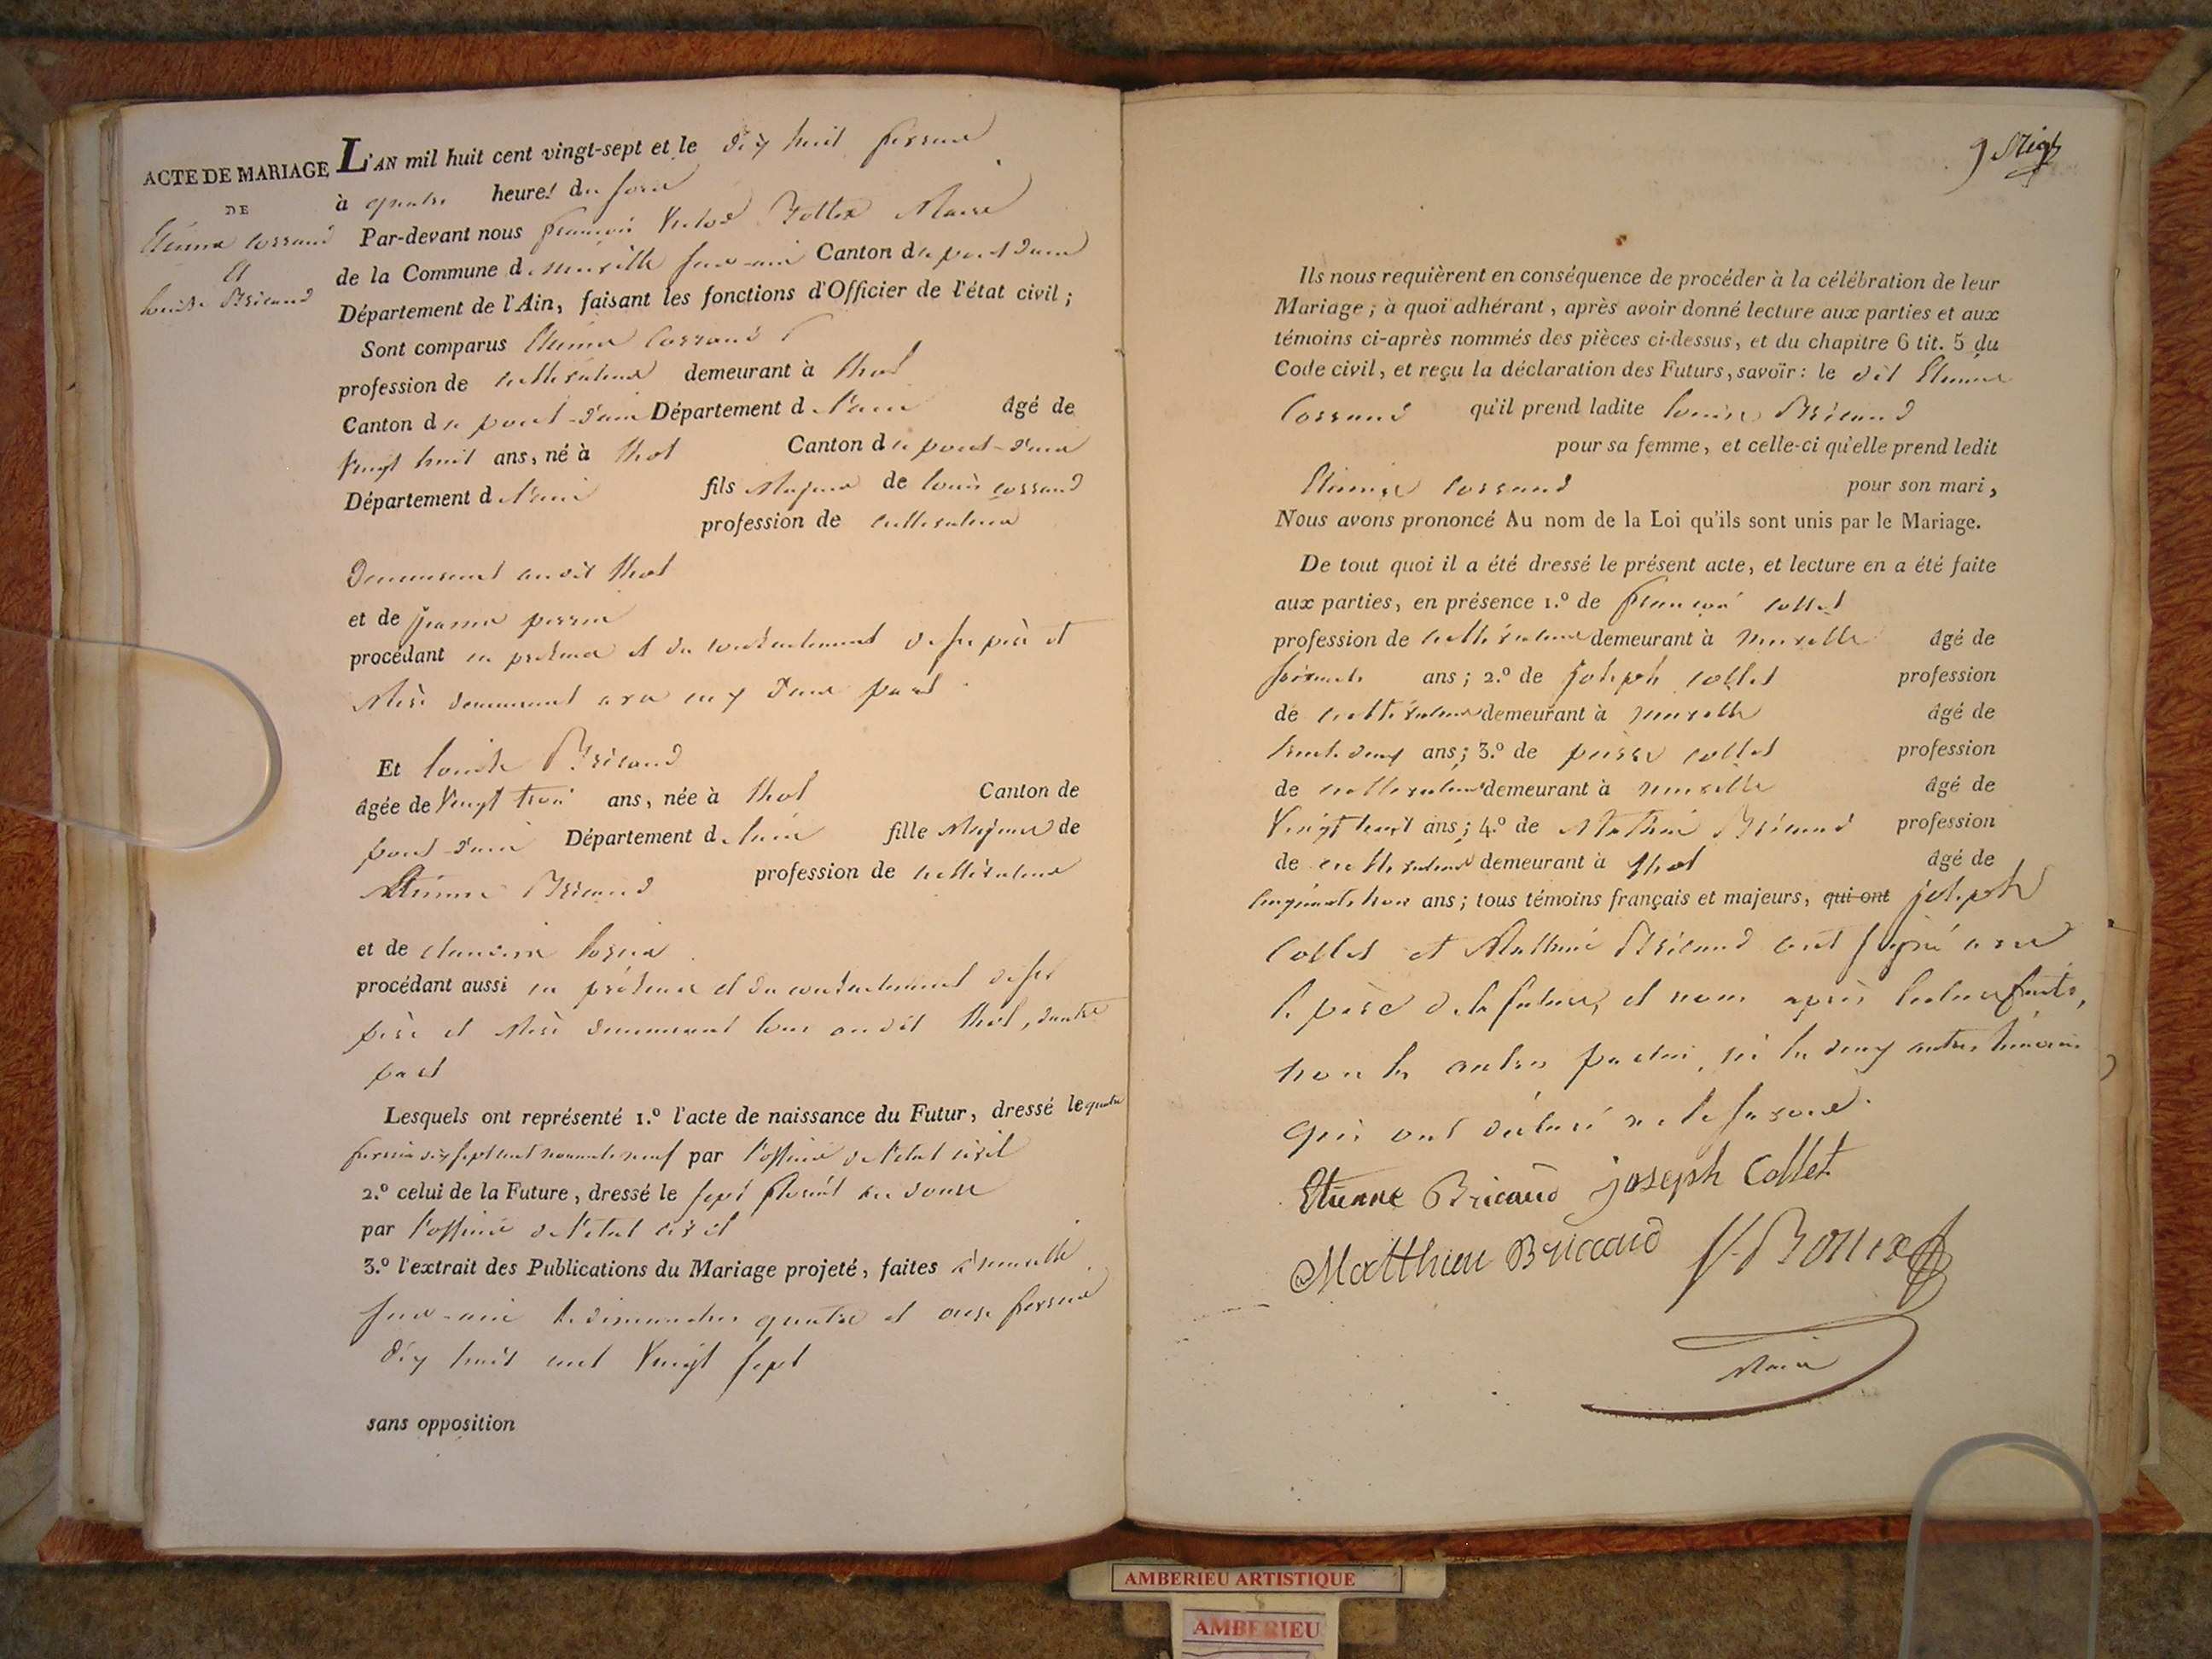 ACTE DE MARIAGE
DE
Etienne Corrand
Et
Louise Bricaud
L'AN mil huit cent vingt-sept et le dix huit fevrier
à quatre heures du soir
Par-devant nous François Victor Maire
de la Commune de neuville sur-ain Canton de pont dain
Département de l'Ain, faisant les fonctions d'Officier de l'état civil ;
Sont comparus Etienne Corrand
profession de cultivateur demeurant à thol
Canton de pont-d'ain Département de l'ain âgé de
Vingt huit ans, né à thol Canton de pont-d'ain
Département de l'ain fils Majeur de louis corrand
profession de cultivateur
Demeurant au dit thol
et de jeanne perrin
procédant en présence et du consentement de ses père et
Mère demeurant avec eux d'une part
Et louise Bricaud
âgée de Vingt trois ans, née à thol Canton de
pont-d'ain Département de l'ain fille Majeure de
Etienne Bricaud profession de cultivateur
et de claudine
procédant aussi en présence et du consentement de ses
père et Mère demeurant tous au dit thol, dautre
part
Lesquels ont représenté 1.º l'acte de naissance du Futur, dressé le quatre
fevrier dix sept cent nonante neuf par l'officier de l'etat civil
2.º celui de la Future, dressé le sept floréal an douze
par l'officier de l'etat civil
3.º l'extrait des Publications du Mariage projeté, faites à neuville
sur-ain les dimanches quatre et onze fevrier
dix huit cent Vingt sept
sans opposition
Ils nous requièrent en conséquence de procéder à la célébration de leur
Mariage ; à quoi adhérant, après avoir donné lecture aux parties et aux
témoins ci-après nommés des pièces ci-dessus, et du chapitre 6 tit. 5 du
Code civil, et reçu la déclaration des Futurs, savoir : le dit Etienne
Corrand qu'il prend ladite louise Bricaud
pour sa femme, et celle-ci qu'elle prend ledit
Etienne corrand pour son mari,
Nous avons prononcé Au nom de la Loi qu'ils sont unis par le Mariage.
De tout quoi il a été dressé le présent acte, et lecture en a été faite
aux parties, en présence 1.º de françois collet
profession de cultivateur demeurant à neuville âgé de
soixante ans ; 2.º de joseph collet profession
de cultivateur demeurant à neuville âgé de
trente deux ans ; 3.º de pierre collet profession
de cultivateur demeurant à neuville âgé de
Vingt huit ans ; 4.º de Mathieu Bricaud profession
de cultivateur demeurant à thol âgé de
cinquante trois ans ; tous témoins français et majeurs, qui ont joseph
Collet et Mathieu Bricaud ont signé avec
le père de la future, et nous après lecture faite,
non les autres parties, ni les deux autres témoins
qui ont déclaré ne le savoir.
Etienne Bricaud joseph Collet
Matthieu Briccaud
Maire
AMBERIEU ARTISTIQUE
AMBERIEU